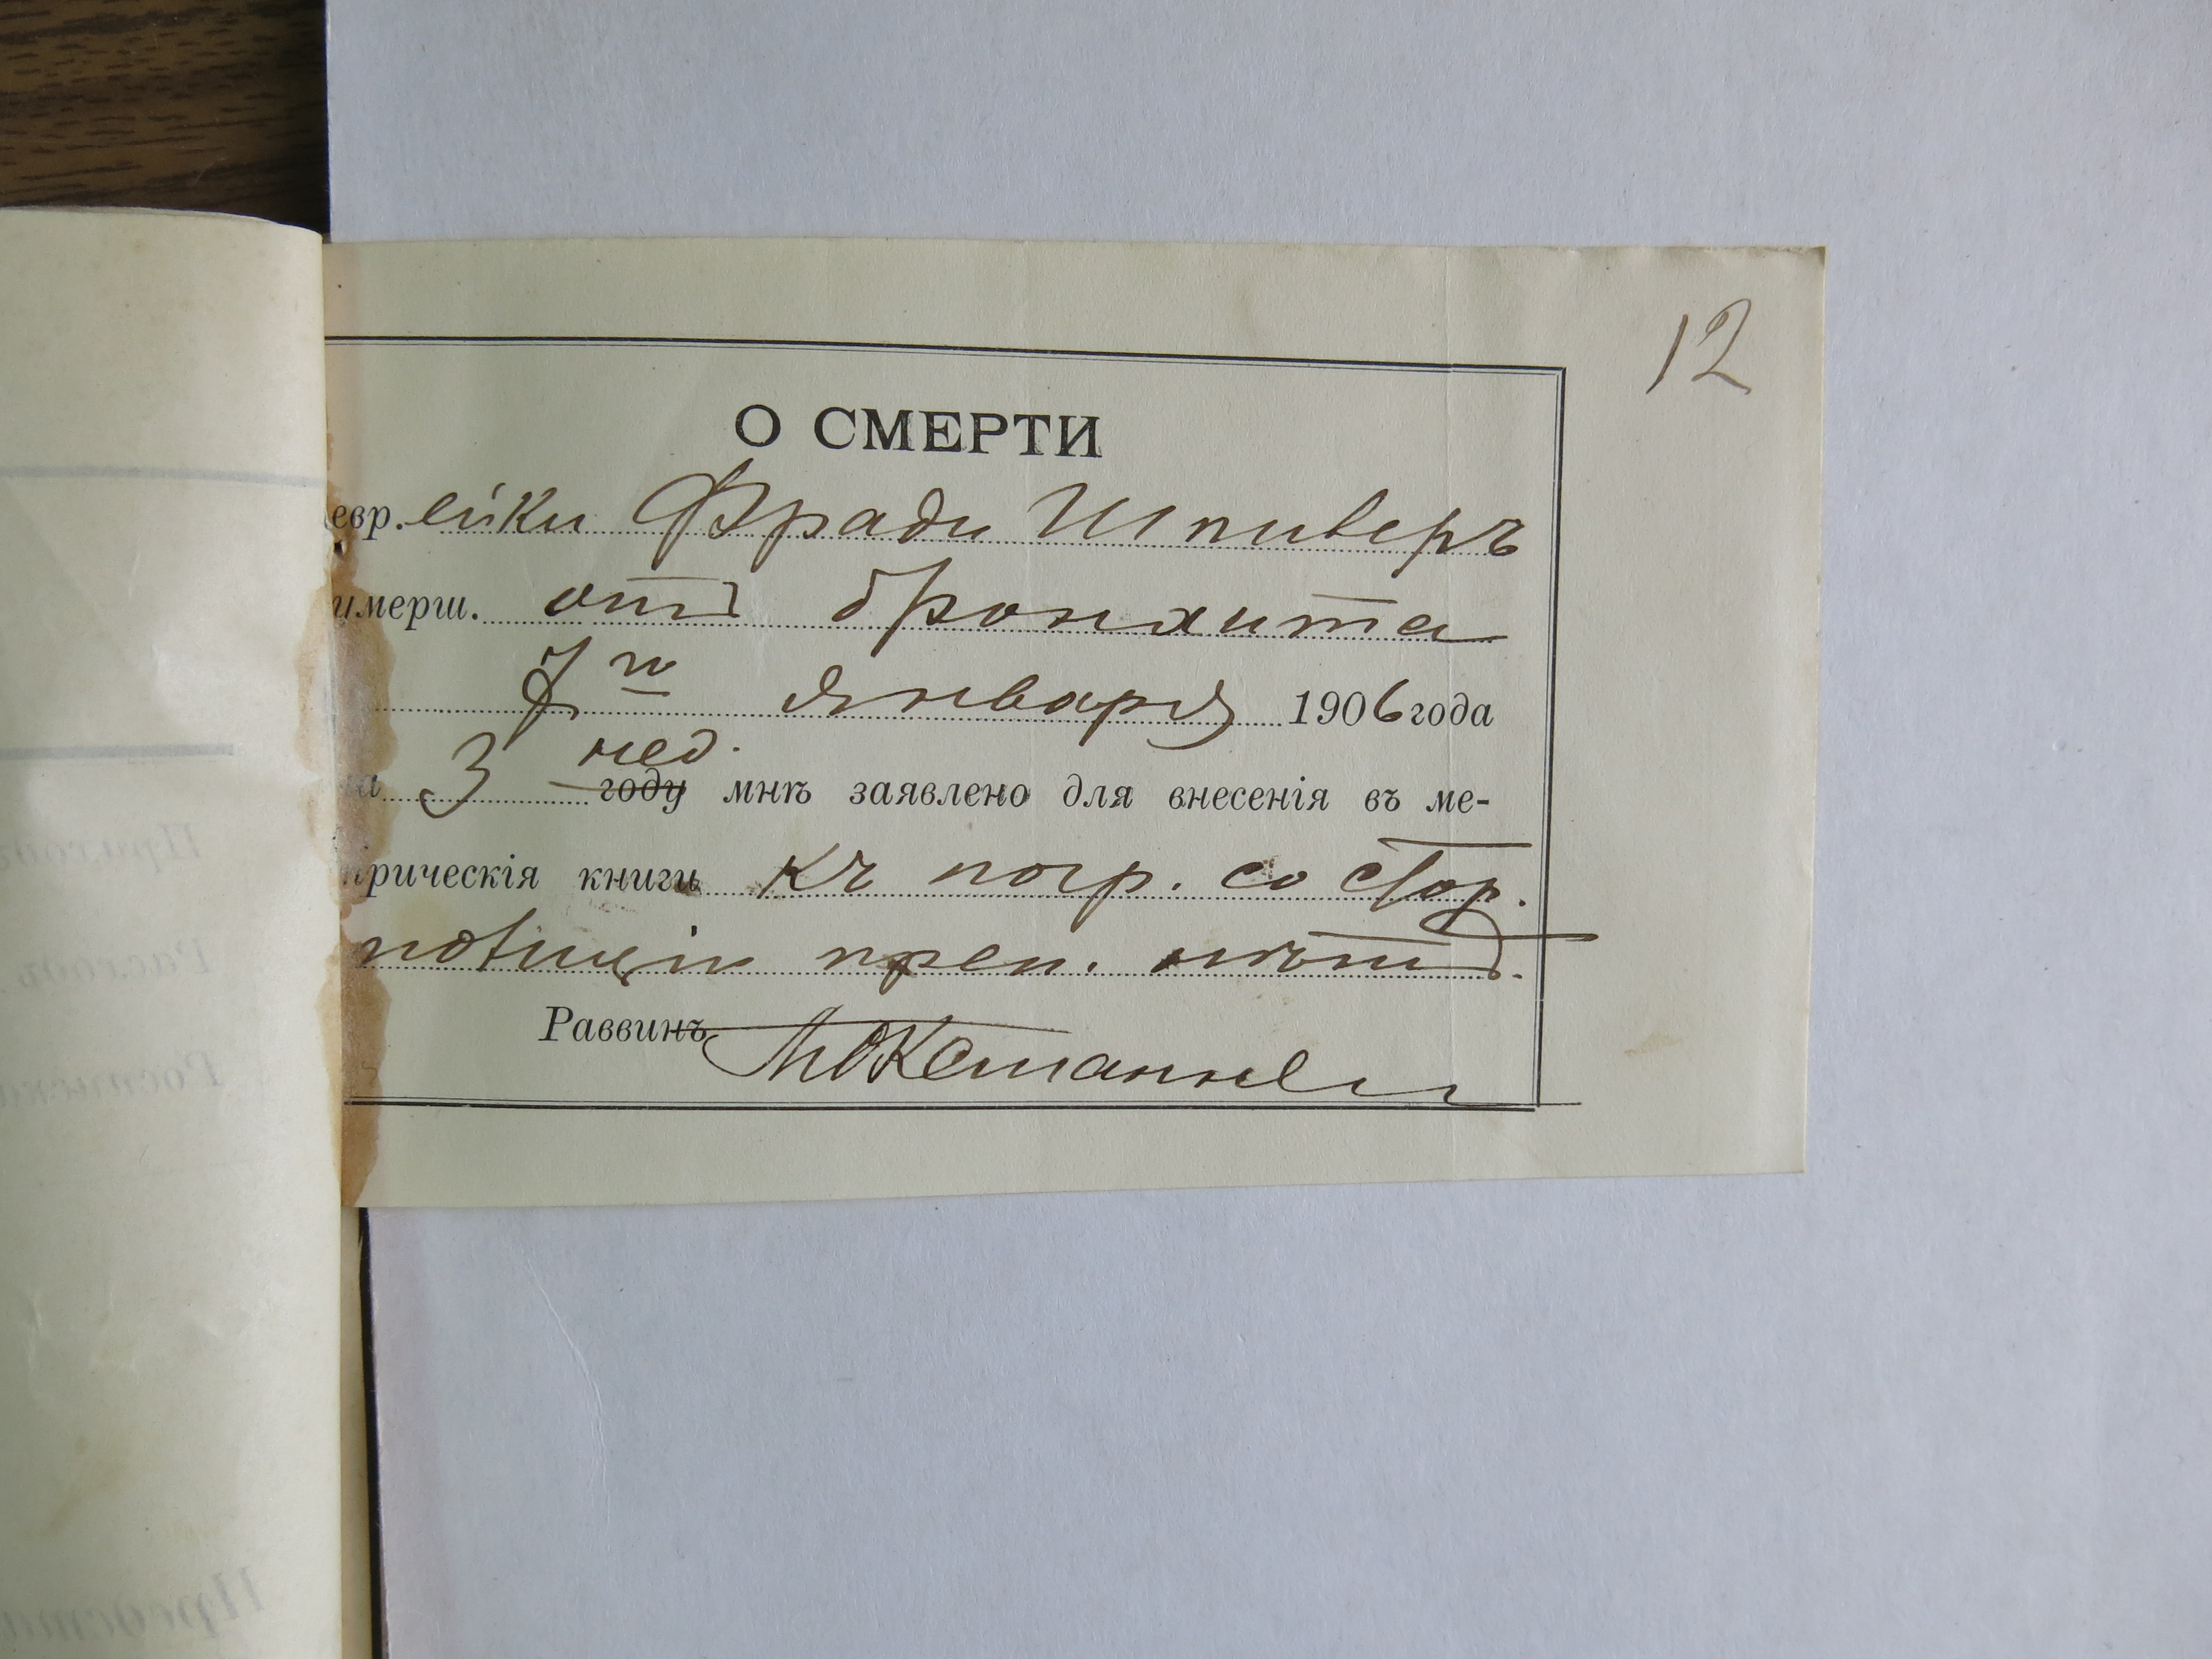 12
О СМЕРТИ
евр.ейки Фради Шпиверъ
умерш. отъ бронхита
7го января 1906 года
на 3 нед.
году мнѣ заявлено для внесенія въ ме-
трическія книги къ погр. со стор.
полиціи преп. нѣтъ.
Раввинъ